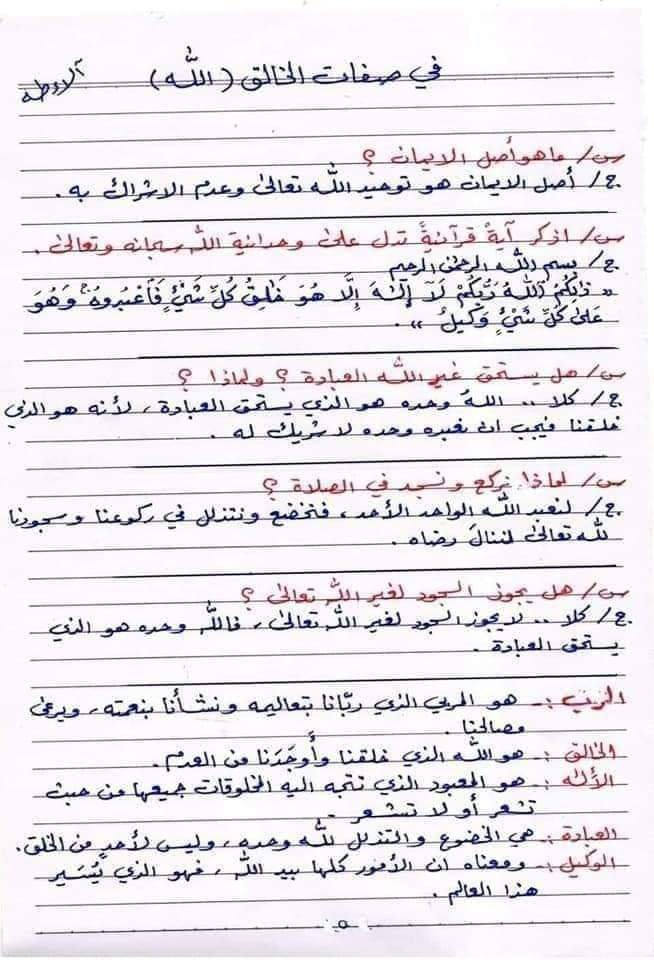 في صفات الخالق (الله)
س/ ما هو أصل الايمان ؟
ج/ أصل الايمان هو توحيد الله تعالى وعدم الاشراك به .
س/ اذكر آيةً قرآنيةً تدل على وحدانية الله سبحانه وتعالى .
ج/ بسم الله الرحمن الرحيم
« ذَٰلِكُمُ ٱللَّهُ رَبُّكُمْ لَآ إِلَٰهَ إِلَّا هُوَ خَٰلِقُ كُلِّ شَيْءٍ فَٱعْبُدُوهُ وَهُوَ
عَلَىٰ كُلِّ شَيْءٍ وَكِيلٌ » .
س/ هل يستحق غير الله العبادة ؟ ولماذا ؟
ج/ كلا .. اللهُ وحده هو الذي يستحق العبادة ، لأنه هو الذي
خلقنا فيجب ان نعبده وحده لا شريك له .
س/ لماذا نركع ونسجد في الصلاة ؟
ج/ لنعبد الله الواحد الأحد ، فنخضع ونتذلل في ركوعنا وسجودنا
لله تعالى لننال رضاه .
س/ هل يجوز السجود لغير الله تعالى ؟
ج/ كلا .. لا يجوز السجود لغير الله تعالى ، فالله وحده هو الذي
يستحق العبادة .
الرب :- هو المربي الذي ربّانا بتعاليمه ونشأنا بنعمته ، ويرعى
مصالحنا .
الخالق :- هو الله الذي خلقنا وأَوجَدَنا من العدم .
الأله :- هو المعبود الذي تتجه اليه المخلوقات جميعها من حيث
تشعر أو لا تشعر .
العبادة :- هي الخضوع والتذلل لله وحده ، وليس لأحدٍ من الخلق .
الوكيل :- ومعناه ان الأمور كلها بيد الله ، فهو الذي يُسَير
هذا العالم .
٥